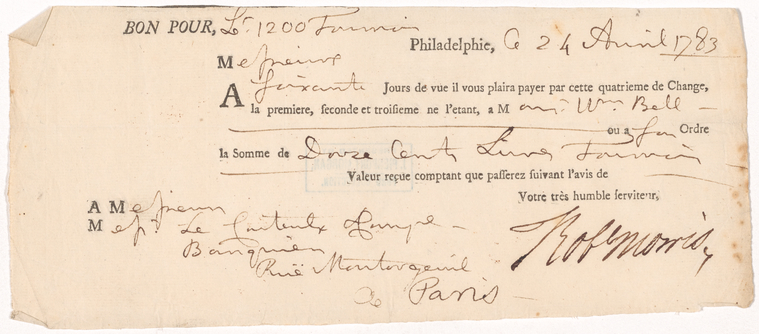 BON POUR, Lt. 1200 Tournois
Philadelphie, Ce 24 Avril 1783
Messieurs
A Soixante Jours de vue il vous plaira payer par cette quatrieme de Change,
la premiere, seconde et troisieme ne l'etant, a M onsr. Wm. Bell
ou a Son Ordre
la Somme de Douze Cents Livres Tournois
Valeur reçue comptant que passerez suivant l'avis de
Votre très humble serviteur,
A Messieurs
Messrs. Le Couteulx & Compe.
Banquiers
Ruë Montorgeuil
a Paris
Robt Morris